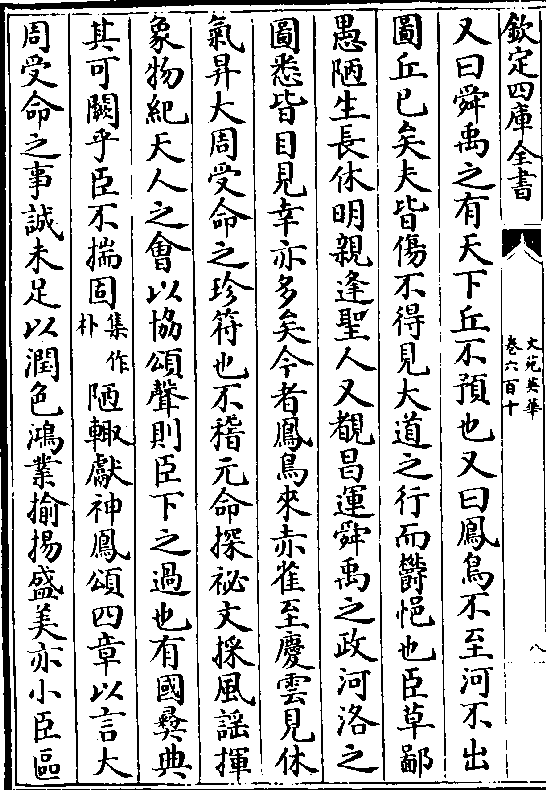 欽定四庫全書
文苑英華
卷六百十
八
又曰舜禹之有天下丘不預也又曰鳳鳥不至河不出
圖丘已矣夫皆傷不得見大道之行而欝悒也臣草鄙
愚陋生長休明親逢聖人又覩昌運舜禹之政河洛之
圖悉皆目見幸亦多矣今者鳳鳥來赤雀至慶雲見休
氣昇大周受命之珍符也不稽元命探祕文採風謡揮
象物紀天人之會以協頌聲則臣下之過也有國彝典
其可闕乎臣不揣固集作朴陋輙獻神鳳頌四章以言大
周受命之事誠未足以潤色鴻業揄揚盛美亦小臣區